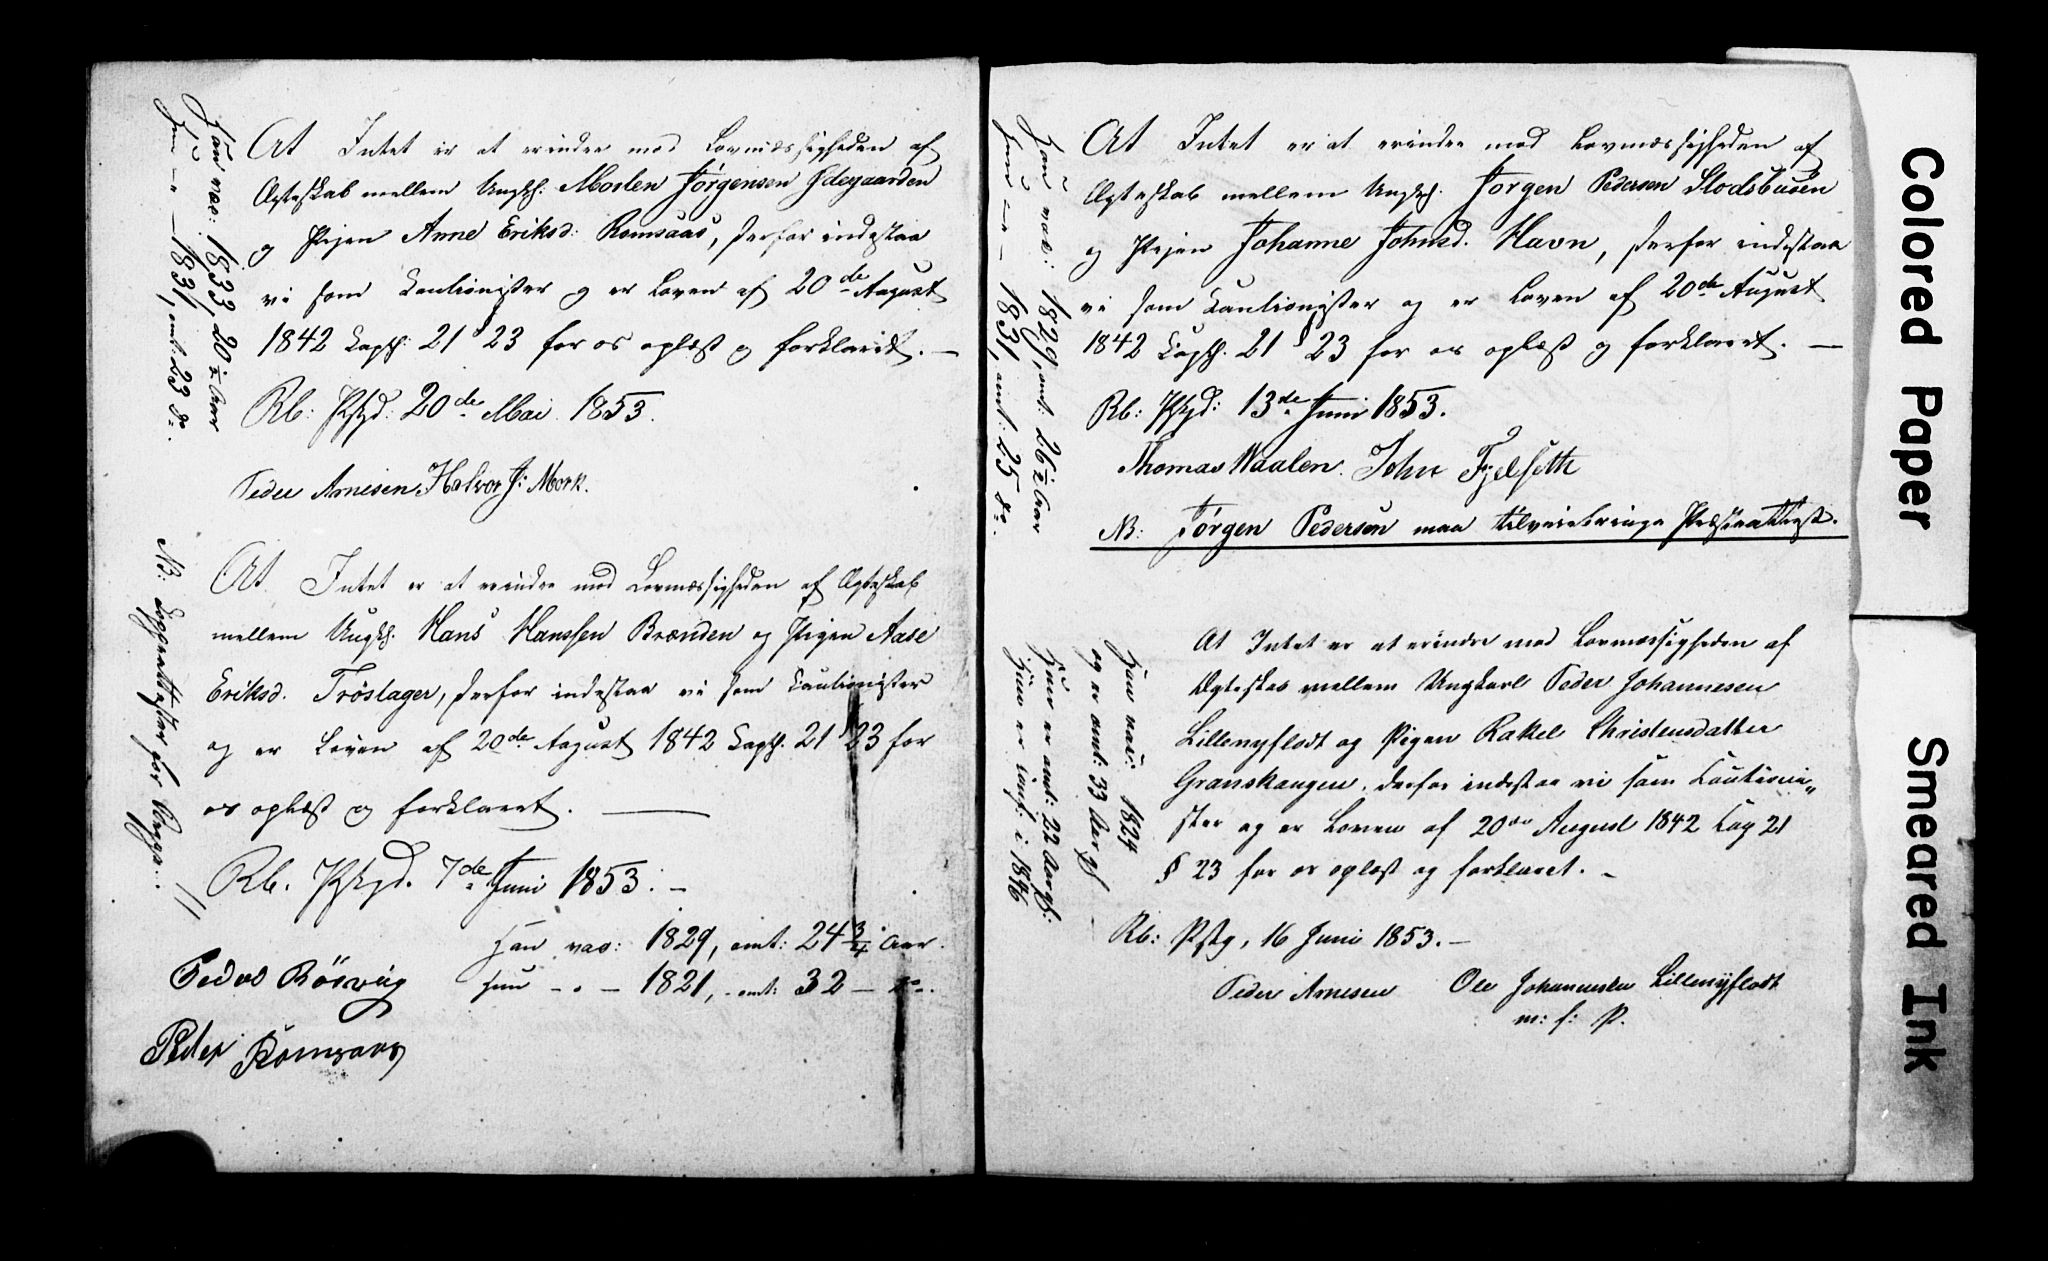 Han vac: 1833, 20 1/2 Aar
Hun -"- 1831, amt: 23 do.
At Intet er at erindre mod Lovmæssigheden af
Ægteskab mellem Ungk: Morten Jørgensen Ødegaarden
og Pigen Anne Eriksd: Romsaas, derfor indestaa
vi som Cautionister og er Loven af 20de August
1842 Capt: 21 § 23 for os oplæst og forklaret. —
Rb: Pstgd: 20de Mai 1853.
Peder Arnesen Halvor J: Mork.
NB: Koppeattester for Begge.
At Intet er at erindre mod Lovmæssigheden af Ægteskab
mellem Ungk: Hans Hanssen Brænden og Pigen Aase
Eriksd. Tröslager, derfor indestaa vi som Cautionister
og er Loven af 20de August 1842 Capt. 21 § 23 for
os oplæst og forklaret. —
Rb. Pstgd. 7de Juni 1853. —
Han vac: 1829, amt: 24 3/4 Aar.
Hun -"- 1821, amt: 32 — do.
Peder Rösvüg
Peder Romsaas
Han vac: 1829, amt: 26 1/2 Aar
Hun -"- 1831, amt: 25 do.
At Intet er at erindre mod Lovmæssigheden af
Ægteskab mellem Ungk: Jørgen Pedersen Stodsbuöen
og Pigen Johanne Johnsd. Havn, derfor indestaa
vi som Cautionister og er Loven af 20de August
1842 Capt. 21 § 23 for os oplæst og forklaret. —
Rb: Pstgd: 13de Juni 1853.
Thomas Waalen. John Fjelseth
NB: Jørgen Pedersen maa tilveiebringe Præsteattest.
Han vac: 1824
og er amt: 33 Aar gl
Hun er amt: 22 Aar gl:
Hun er conf: i 1846
At Intet er at erindre mod Lovmæssigheden af
Ægteskab mellem Ungkarl Peder Johannesen
Lillenyflodt og Pigen Rakel Christensdatter
Granskaugen, derfor indestaa vi som Cautioni„
ster og er Loven af 20de August 1842 Cap 21
§ 23 for os oplæst og forklaret. —
Rb: Pstg, 16 Juni 1853. —
Peder Arnesen Ole Johannesen Lillenyflodt
m: f: P.
Colored Paper
Smeared Ink